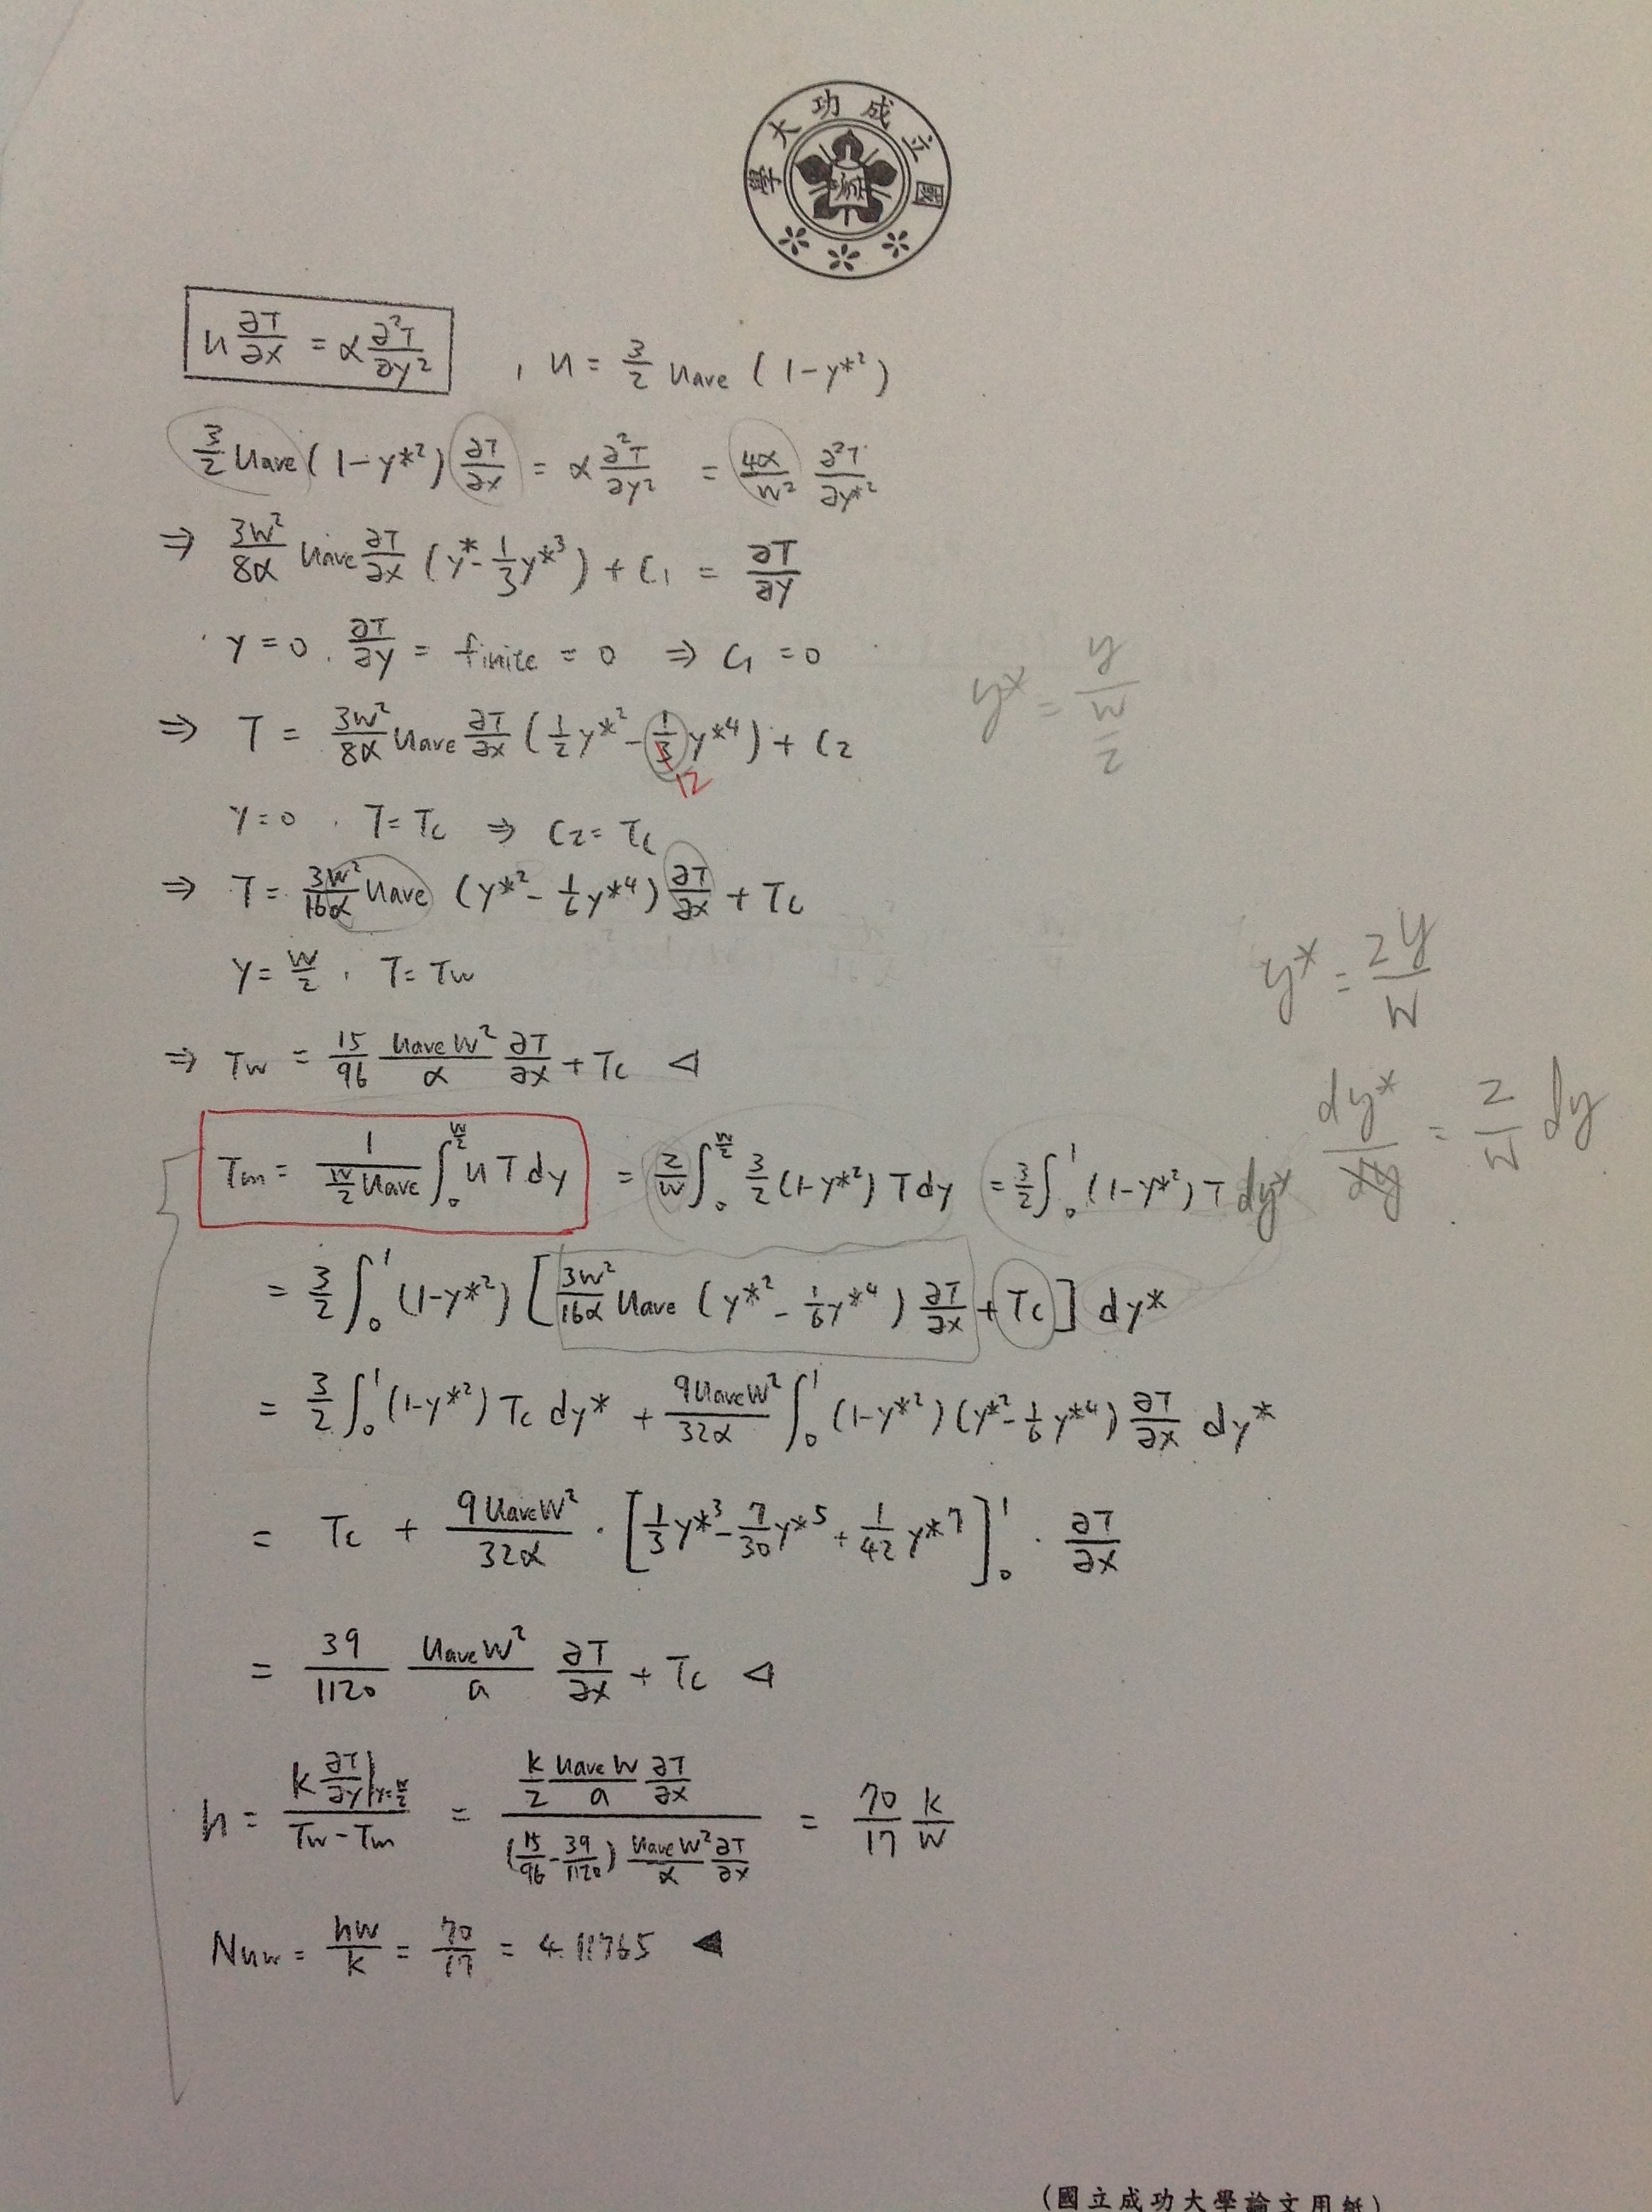 國立成功大學
u ∂T/∂x = α ∂²T/∂y² , u = 3/2 uave (1-y*²)
3/2 uave (1-y*²) ∂T/∂x = α ∂²T/∂y² = 4α/W² ∂²T/∂y*²
⇒ 3W²/8α uave ∂T/∂x (y* - 1/3 y*³) + C1 = ∂T/∂y
y=0 . ∂T/∂y = finite = 0 ⇒ C1 = 0
y* = y/(W/2)
⇒ T = 3W²/8α uave ∂T/∂x (1/2 y*² - 1/3 y*⁴) + C2
12
y=0 . T=Tc ⇒ C2 = Tc
⇒ T = 3W²/16α uave (y*² - 1/6 y*⁴) ∂T/∂x + Tc
y = W/2 , T = Tw
y* = 2y/W
⇒ Tw = 15/96 uaveW²/α ∂T/∂x + Tc ◁
dy* = 2/W dy
Tm = 1/(W/2 uave) ∫₀^(W/2) u T dy = 2/W ∫₀^(W/2) 3/2 (1-y*²) T dy = 3/2 ∫₀¹ (1-y*²) T dy*
= 3/2 ∫₀¹ (1-y*²) [3W²/16α uave (y*² - 1/6 y*⁴) ∂T/∂x + Tc] dy*
= 3/2 ∫₀¹ (1-y*²) Tc dy* + 9uaveW²/32α ∫₀¹ (1-y*²)(y*² - 1/6 y*⁴) ∂T/∂x dy*
= Tc + 9uaveW²/32α · [1/3 y*³ - 7/30 y*⁵ + 1/42 y*⁷]₀¹ · ∂T/∂x
= 39/1120 uaveW²/a ∂T/∂x + Tc ◁
h = k ∂T/∂y|y=W/2 / (Tw - Tm) = (k/2 uaveW/a ∂T/∂x) / ((15/96 - 39/1120) uaveW²/α ∂T/∂x) = 70/17 k/W
Nuw = hW/k = 70/17 = 4.11765 ◀
(國立成功大學論文用紙)